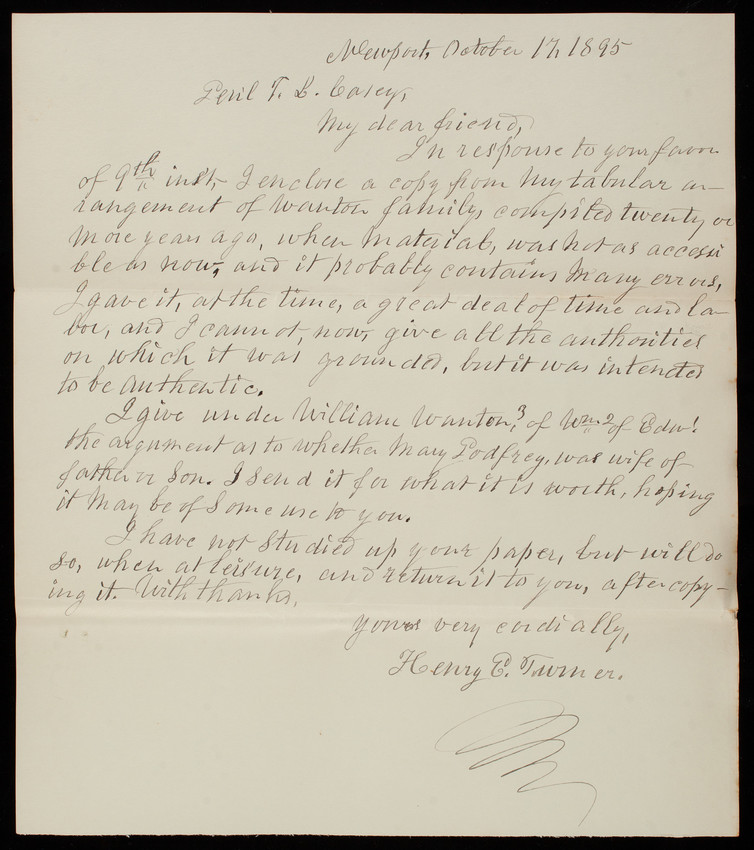 Newport, October 17, 1895
Genl T. L. Casey,
My dear friend,
In response to your favor
of 9th inst, I enclose a copy from my tabular ar-
rangement of Wanton family, compiled twenty or
more years ago, when material, was not as accessi
ble as now, and it probably contains many errors,
I gave it, at the time, a great deal of time and la-
bor, and I cannot, now, give all the authorities
on which it was grounded, but it was intended
to be authentic.
I give under William Wanton,3 of Wm.2 of Edwd.1
the argument as to whether Mary Godfrey, was wife of
father or son. I send it for what it is worth, hoping
it may be of some use to you.
I have not studied up your paper, but will do
so, when at leisure, and return it to you, after copy-
ing it. With thanks,
yours very cordially,
Henry E. Turner.